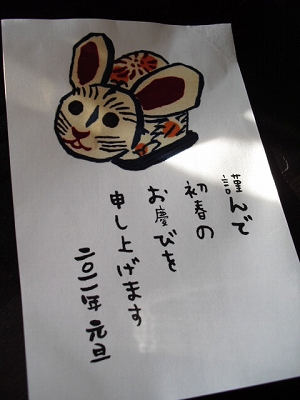 謹んで
初春の
お慶びを
申し上げます
二〇一一年 元旦